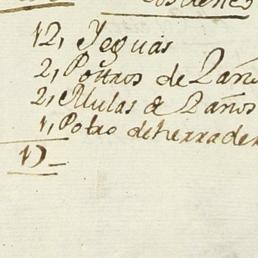 12, Yeguas
2, Potros de 2 año
2, Mulas de 2 años
1, Potro de herrader
17